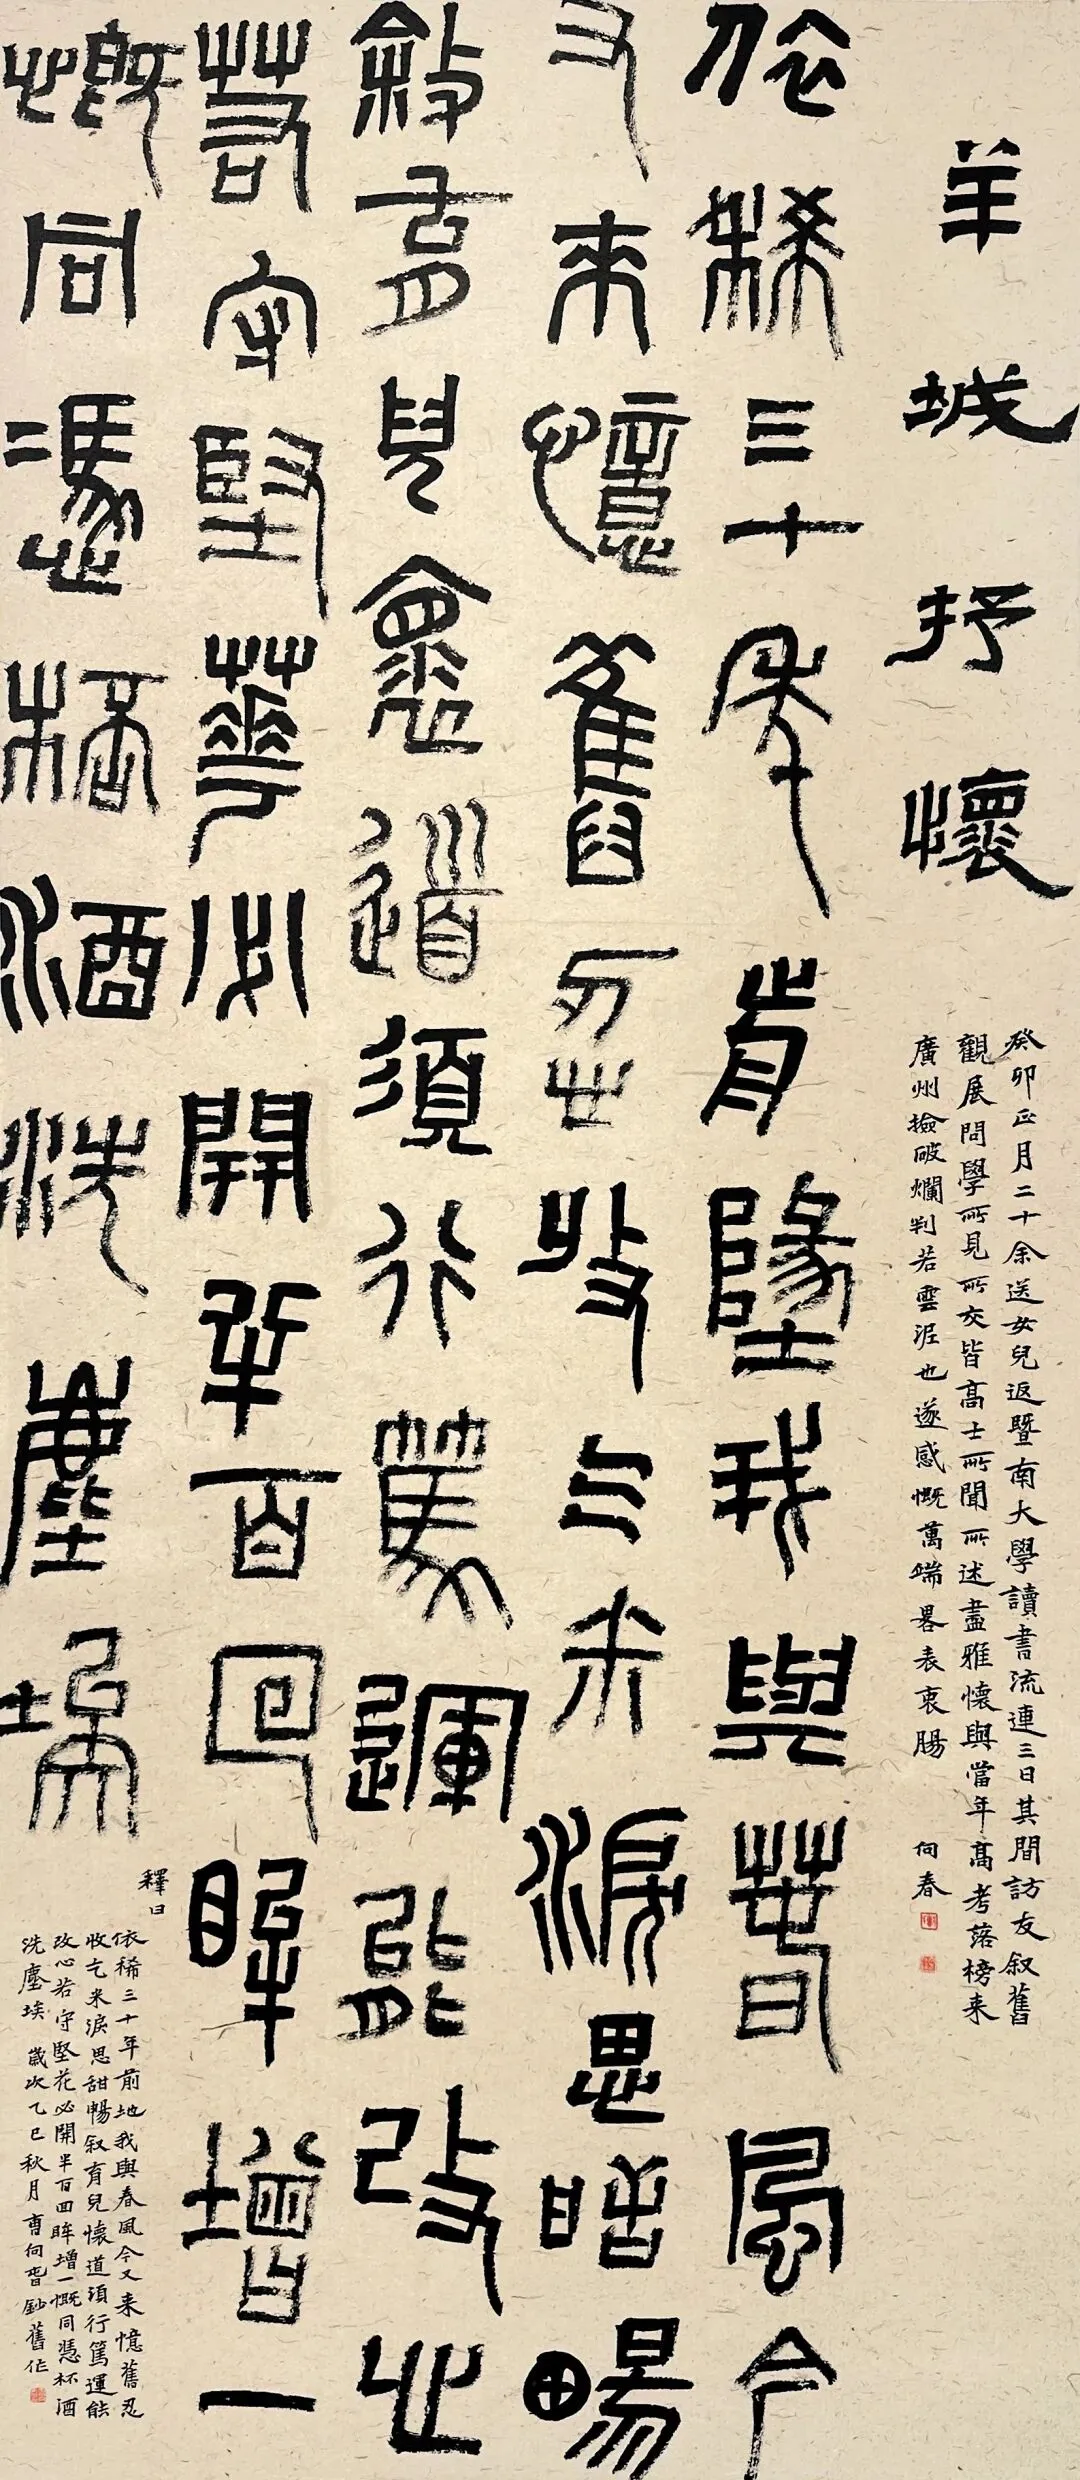 羊城抒懷
癸卯正月二十余送女兒返暨南大學讀書流連三日其間訪友叙舊
觀展問學所見所交皆高士所聞所述盡雅懷與當年高考落榜来
廣州撿破爛判若雲泥也遂感慨萬端畧表衷腸
向春
依稀三十年前墬我與春風今
又来憶舊忍收乞米淚思甛暢
敘育兒懷道須行篤運能改心
若守堅華必開半百回眸增一
慨同憑桮酒洗塵埃
釋曰
依稀三十年前地我與春風今又来憶舊忍
收乞米淚思甜暢叙育兒懷道須行篤運能
改心若守堅花必開半百回眸增一慨同憑杯酒
洗塵埃 歲次乙巳秋月曹向春鈔舊作